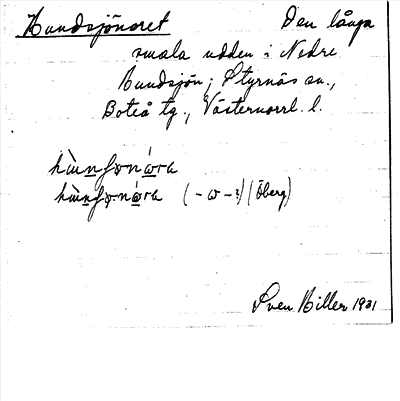 Hundsjönoret Den långa
smala udden i Nedre
Hundsjön; Styrnäs sn.,
Boteå tg., Västernorrl. l.
(-ω-?) (Öberg)
Sven Biller 1931